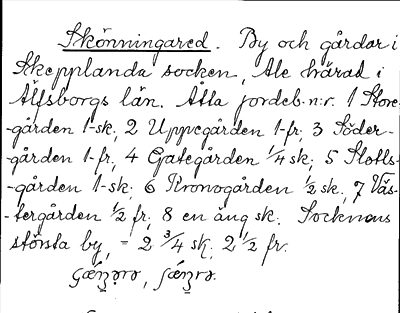 Skönningared. By och gårdar i
Skepplanda socken, Ale härad i
Älfsborgs län. Åtta jordeb.n:r. 1 Store-
-gården 1-sk; 2 Uppegården 1-fr; 3 Söder-
-gården 1-fr, 4 Gategården 1/4 sk; 5 Slotts-
-gården 1-sk; 6 Kronogården 1/2 sk, 7 Väs-
-tergården 1/2 fr, 8 en äng sk. Socknens
största by, = 2 3/4 sk; 2 1/2 fr.